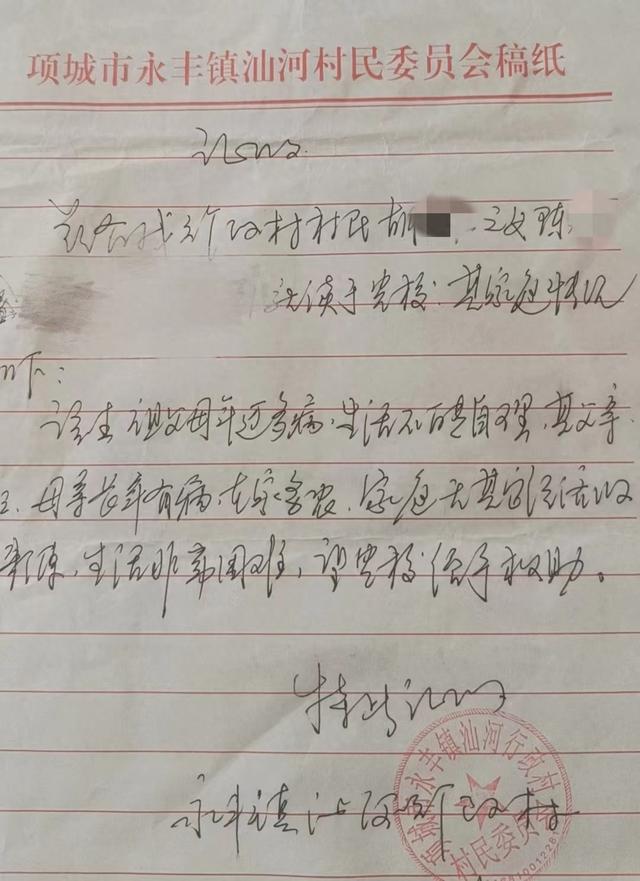 项城市永丰镇汕河村民委员会稿纸
证明
兹有我行政村村民胡 之女
就读于贵校.其家庭情况
如下:
该生祖父母年迈多病,生活不能自理,其父亲
母亲长年有病,在家务农.家庭无其它经济收
来源,生活非常困难,望贵校给予救助。
特此证明
永丰镇汕河行政村
项城市永丰镇汕河行政村
村民委员会